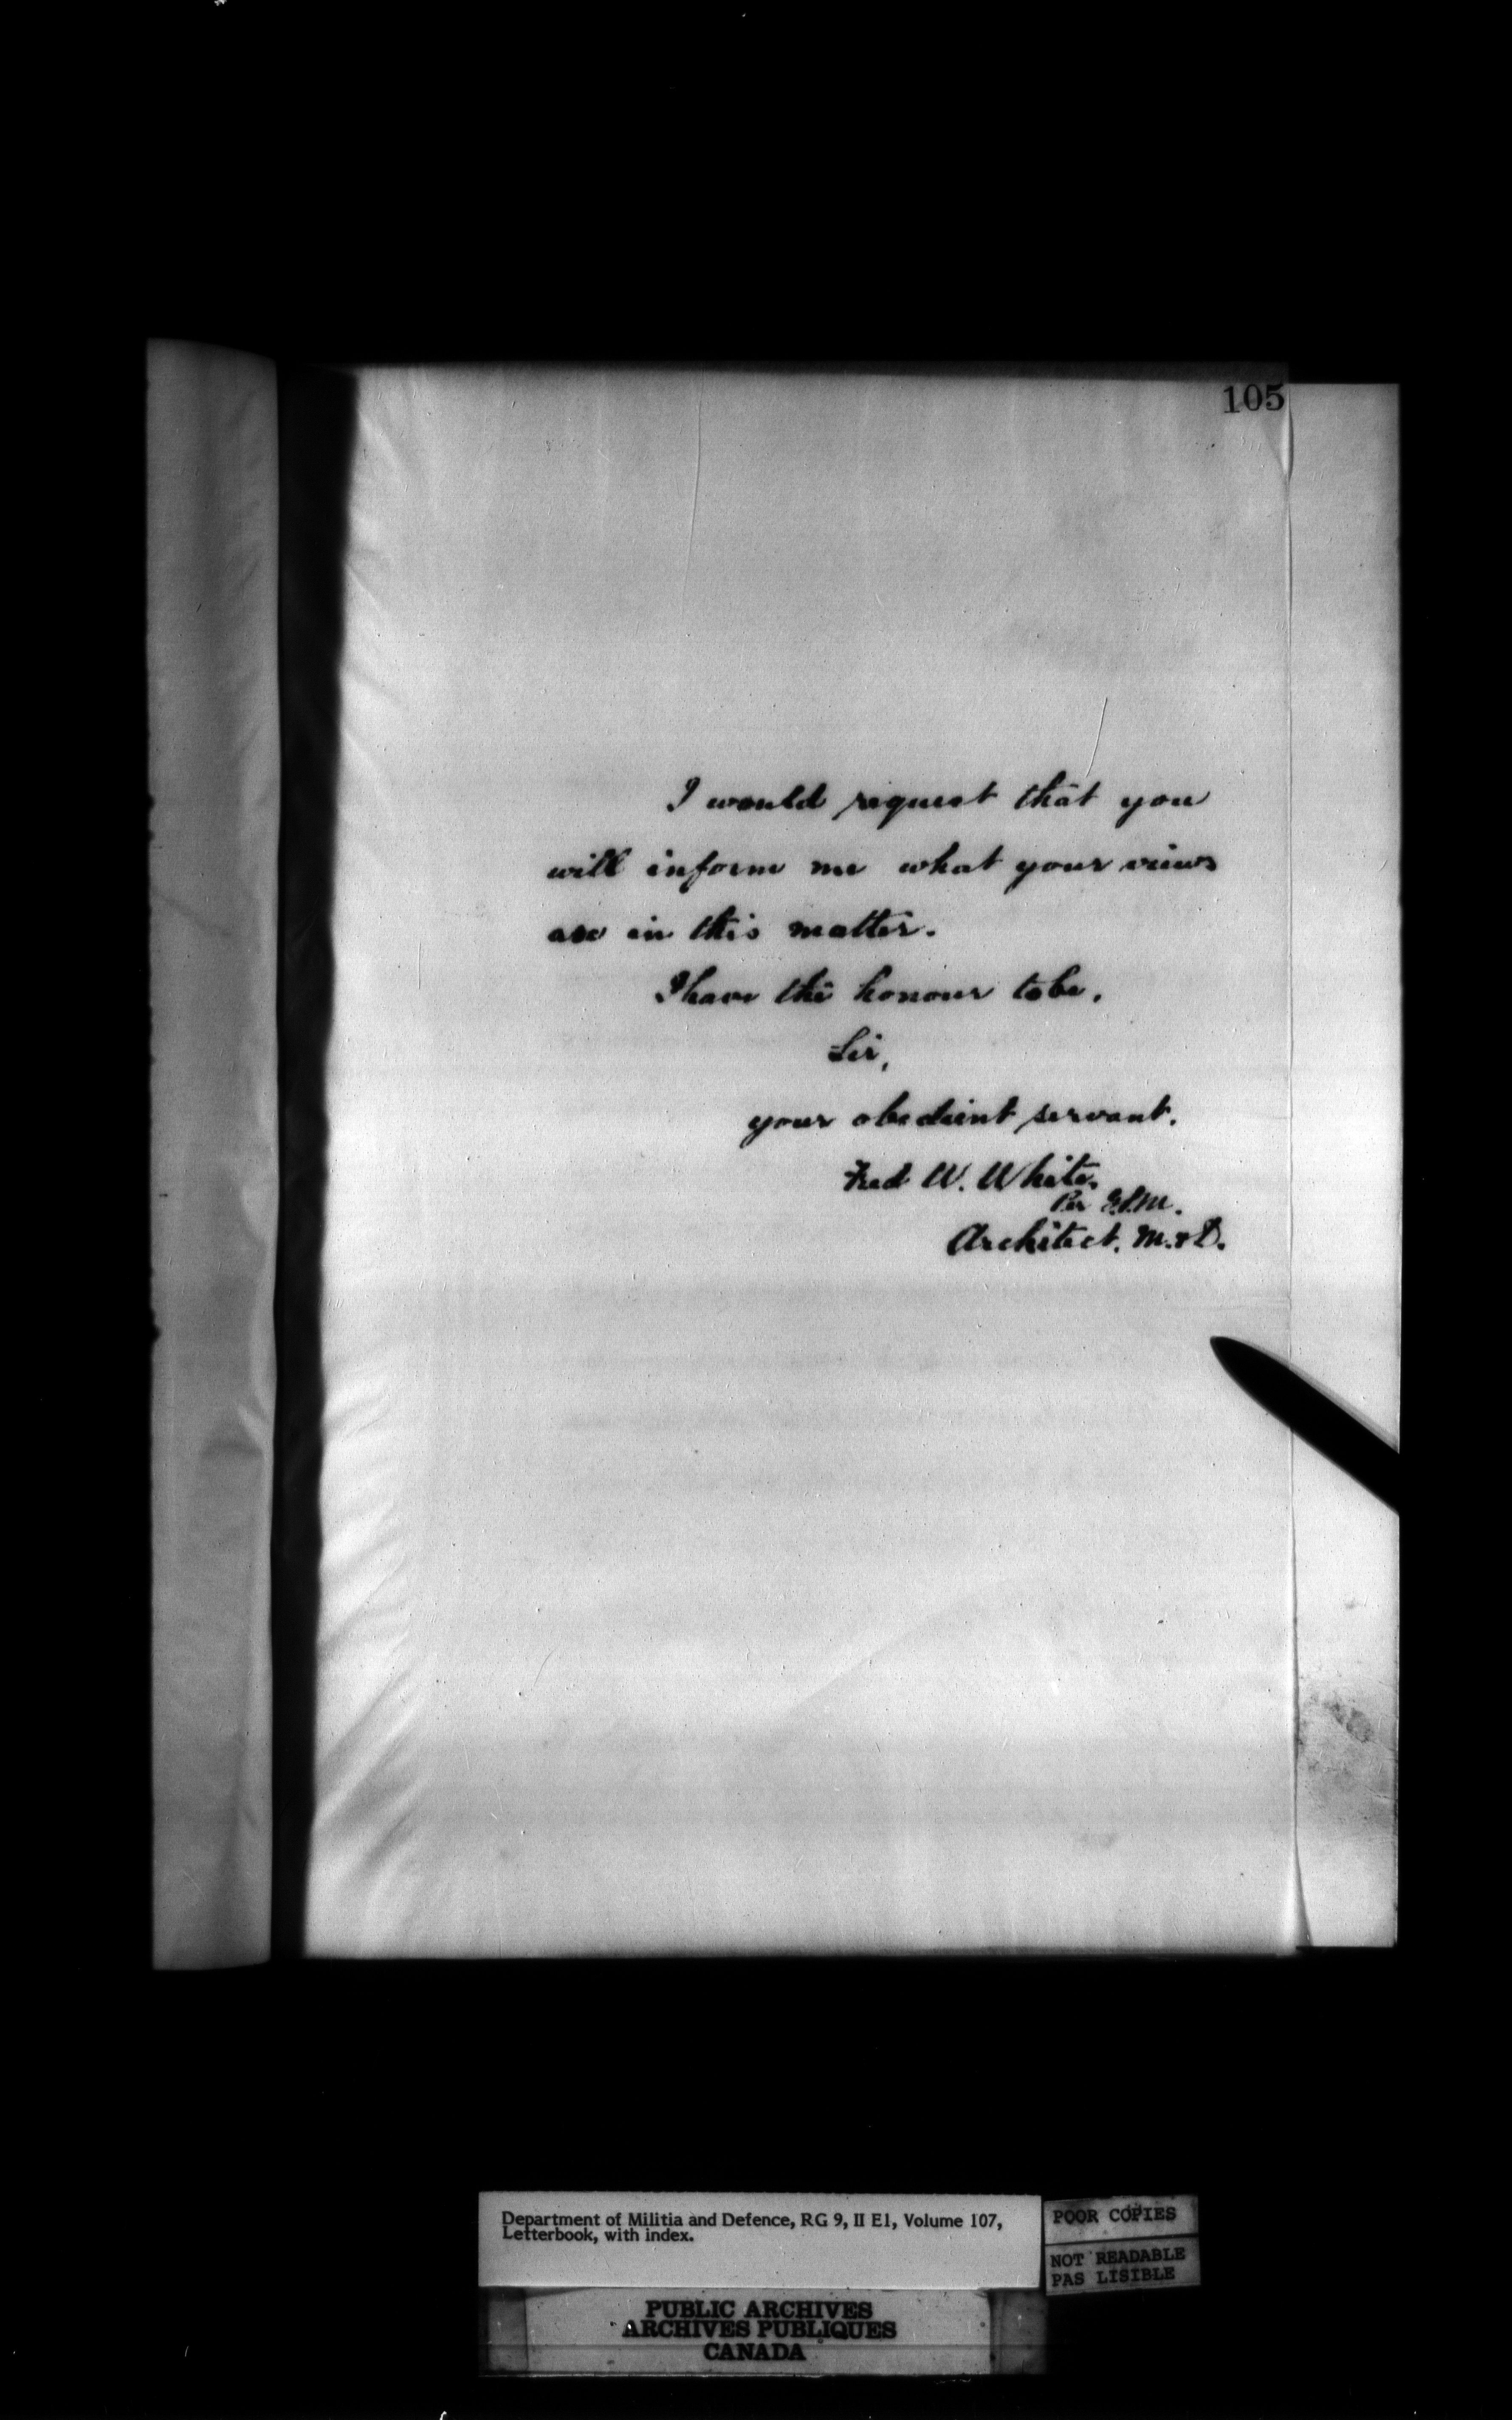 105
I would request that you
will inform me what your views
are in this matter.
I have the honour to be,
Sir,
your obedient servant.
Fred W. White,
Per
Architect. M. & D.
Department of Militia and Defence, RG 9, II E1, Volume 107,
Letterbook, with index.
POOR COPIES
NOT READABLE
PAS LISIBLE
PUBLIC ARCHIVES
ARCHIVES PUBLIQUES
CANADA